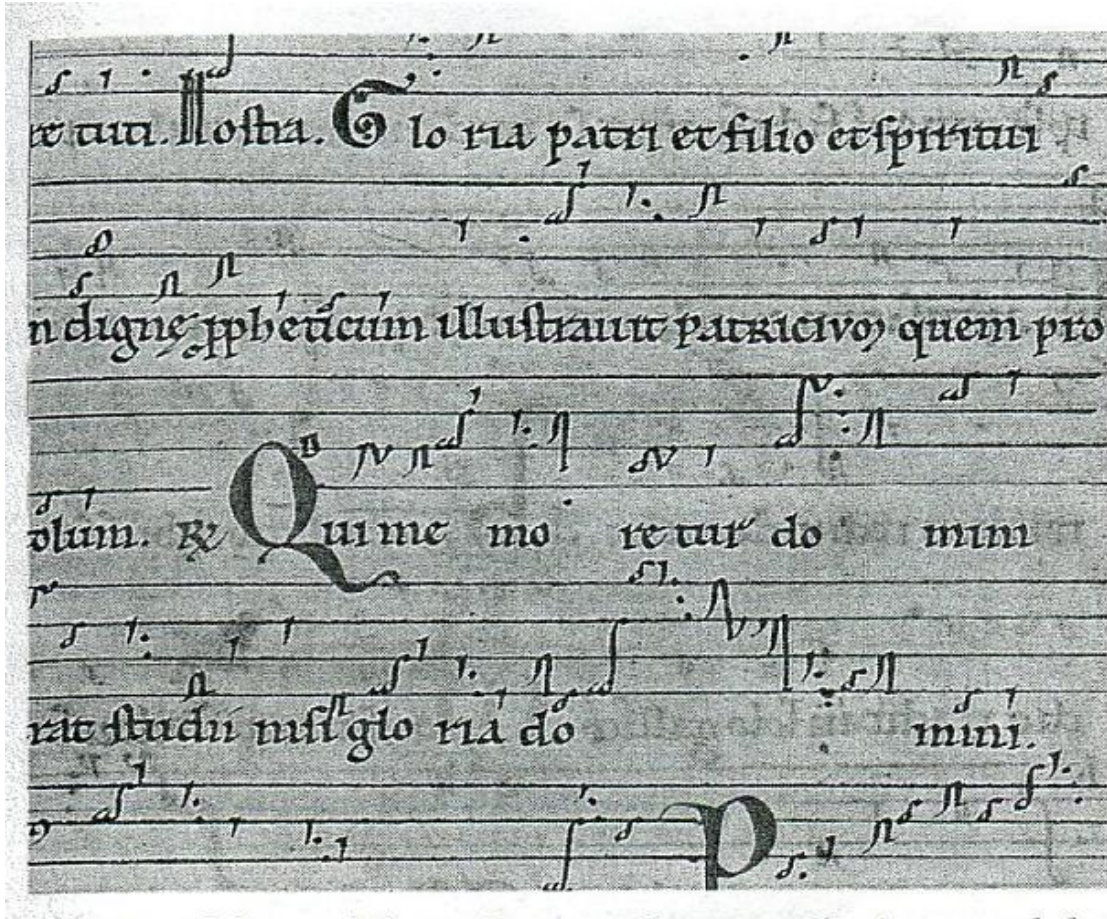 tuti. Nostra. Glo ria patri et filio et spiritui
digne illustravit patricivo quem pro
olum. Qui me mo re tur do mini
rat studii nisi glo ria do mini.
P